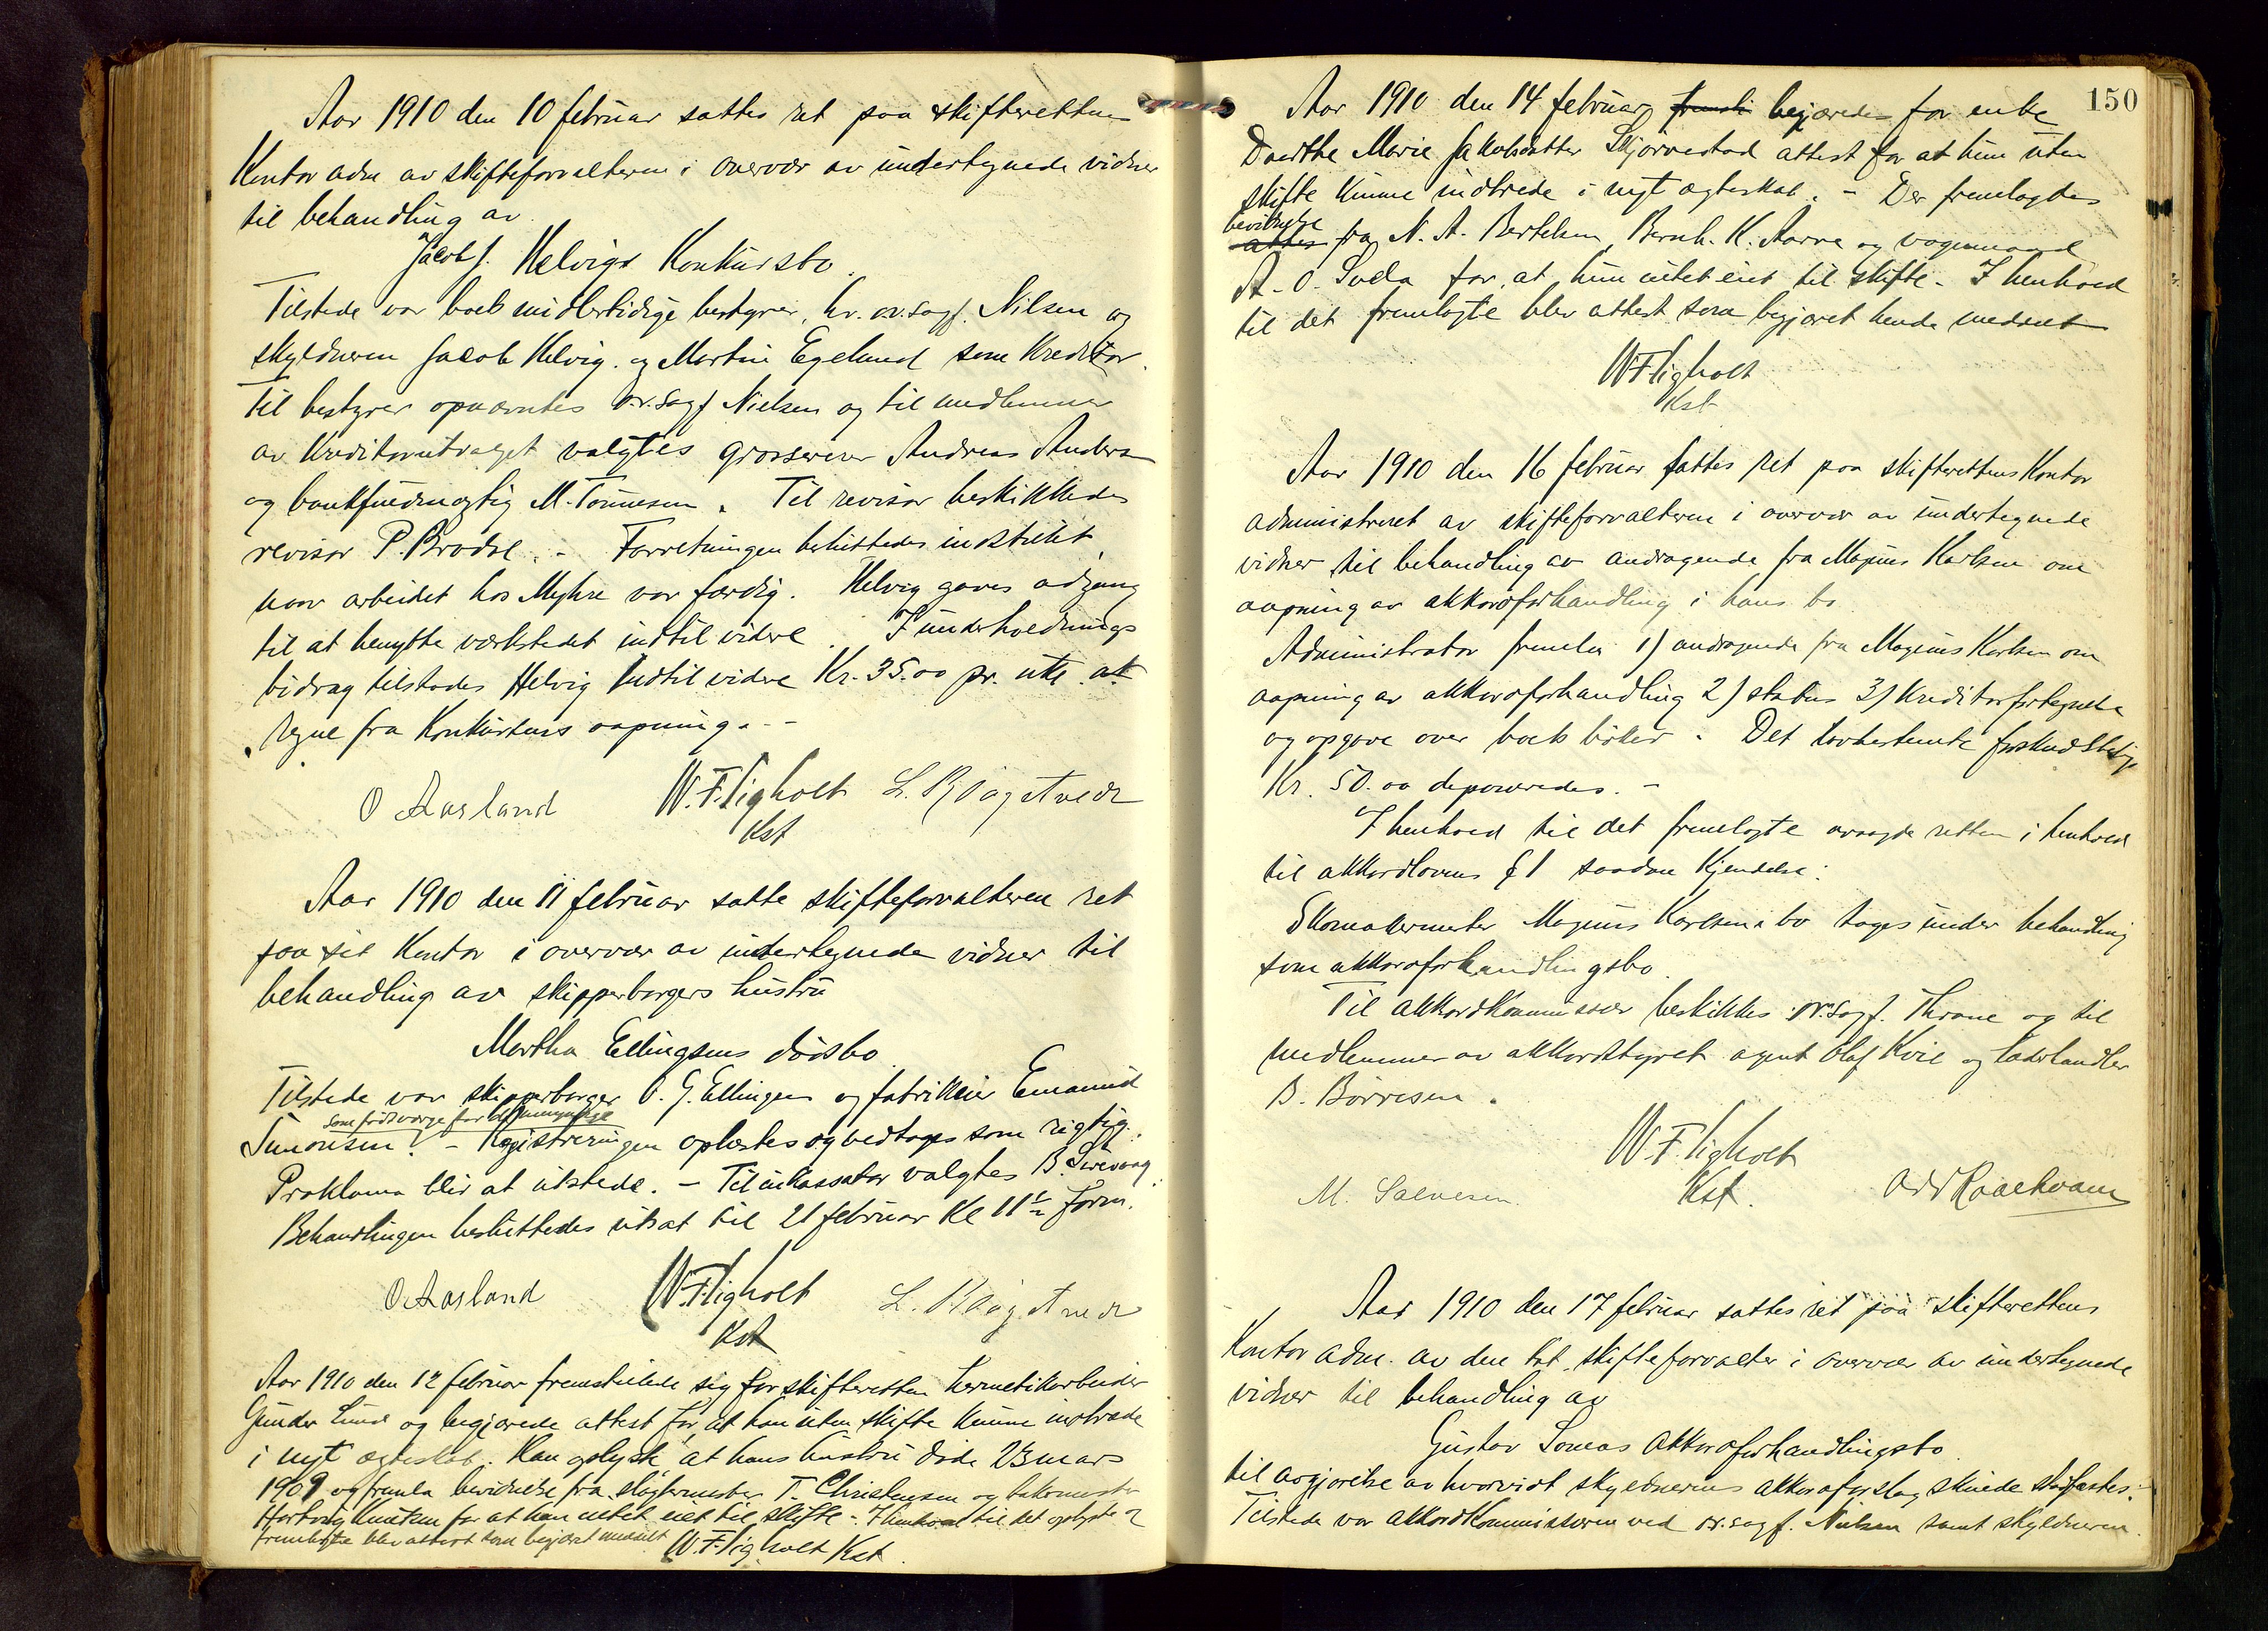 Aar 1910 den 10 februar sattes ret paa skifterettens
Kontor adm av skifteforvalteren i overvær av undertegnede vidner
til behandling av
Jacob J. Helvigs Konkursbo.
Tilstede var boets midlertidige bestyrer, hr. o.r.sagf. Nilsen og
skyldneren Jacob Helvig. og Martin Egelund som Kreditor.
Til bestyrer opnævntes o.r.sagf Nielsen og til medlemmer
av Kreditorutvalget valgtes grosserer Andreas Anders
og bankfuldmægtig M. Tønnesen. Til revisor beskikkedes
revisor P. Brodal. - Forretningen besluttedes indstillet
naar arbeidet hos Myhre var færdig. Helvig gaves adgang
til at benytte verkstedet indtil videre. I underholdnings
bidrag tilstodes Helvig indtil videre Kr. 35.00 pr. uke at
regne fra Konkursens aapning. -
O Aasland W. Fligholt L. Rdagstvedt
Kst
Aar 1910 den 11 februar satte skifteforvalteren ret
paa sit Kontor i overvær av undertegnede vidner til
behandling av skipperborgers hustru
Martha Ellingsens dødsbo
Tilstede var skipperborger O. G. Ellingsen og fabrikeier Emanuel
som født værge for de umyndige
Simonsen. - Registreringen oplæstes og vedtages som rigtig.
Proklama blir at utstede. - Til inkassator valgtes B. Sirevaag.
Behandlingen besluttedes utsat til 21 februar Kl 11½ form.
O. Aasland W. Fligholt L. Rdagstvedt
Kst
Aar 1910 den 12 februar fremstillede sig for skifteretten hermetikarbeider
Gunder Lund og begjærede attest for, at han uten skifte kunne indtræde
i nyt ægteskab. Han oplyste at hans hustru døde 23 mars
1909 og fremla bevidnelse fra slagtermester T. Christensen og bakermester
Hartvig Knutsen for at han intet eiet til skifte. - I henhold til det oplyste og
fremlagte blev attest som begjæret meddelt W. Fligholt Kst.
150
Aar 1910 den 14 februar fremsti begjæredes for enke
Dorthe Marie Jakobsdatter Skjørvestad attest for at hun uten
skifte kunne indtræde i nyt ægteskab. - Der fremlagdes
bevidnelse
attes fra N. A. Bertelsen, Bernh. K. Aarre og vognmand
A. O. Svela for, at hun intet eiet til skifte. I henhold
til det fremlagte blev attest som begjæret hende meddelt
W Fligholt
Kst
Aar 1910 den 16 februar sattes ret paa skifterettens Kontor
administreret av skifteforvalteren i overvær av undertegnede
vidner til behandling av andragende fra Magnus Karlsen om
aapning av akkordforhandling i hans bo
Administrator fremla 1) andragende fra Magnus Karlsen om
aapning av akkordforhandling 2) status 3) Kreditorfortegnelse
og opgave over boets bøker. Det lovbestemte forskud
Kr. 50.00 deponeredes. -
I henhold til det fremlagte avsagde retten i henhold
til akkordlovens § 1 saadan Kjendelse:
Skomakermester Magnus Karlsens bo tages under behandling
som akkordforhandlingsbo.
Til akkordkommissær beskikkes o.r.sagf. Thrane og til
medlemmer av akkordstyret agent Olaf Kvie og læderhandler
B. Børresen.
W. Fligholt
M. Salvesen. Kst. Odd Raaekvam
Aar 1910 den 17 februar sattes ret paa skifterettens
Kontor adm. av den kst. skifteforvalter i overvær av undertegnede
vidner til behandling av
Gustav Somas akkordforhandlingsbo
til avgjørelse av hvorvidt skyldnerens akkordforslag skulde stadfæstes.
Tilstede var akkordkommissæren ved o.r.sagf. Nielsen samt skyldneren.